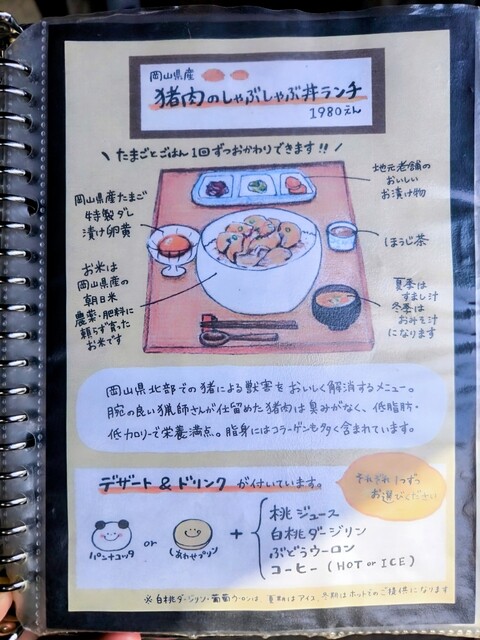 岡山県産
猪肉のしゃぶしゃぶ丼ランチ
1980えん
\ たまごとごはん1回ずつおかわりできます!! /
地元老舗の
おいしい
お漬け物
岡山県産たまご
特製ダレ
漬け卵黄
ほうじ茶
お米は
岡山県産の
朝日米
農薬・肥料に
頼らず育った
お米です
夏季は
すまし汁
冬季は
おみそ汁
になります
岡山県北部での猪による獣害をおいしく解消するメニュー。
腕の良い猟師さんが仕留めた猪肉は臭みがなく、低脂肪・
低カロリーで栄養満点。脂身にはコラーゲンも多く含まれています。
デザート & ドリンク が付いています。
それぞれ1つずつ
お選びください
パンナコッタ
or
しあわせプリン
+
桃ジュース
白桃ダージリン
ぶどうウーロン
コーヒー (HOT or ICE)
※白桃ダージリン・葡萄ウーロンは、夏期はアイス、冬期はホットでのご提供になります